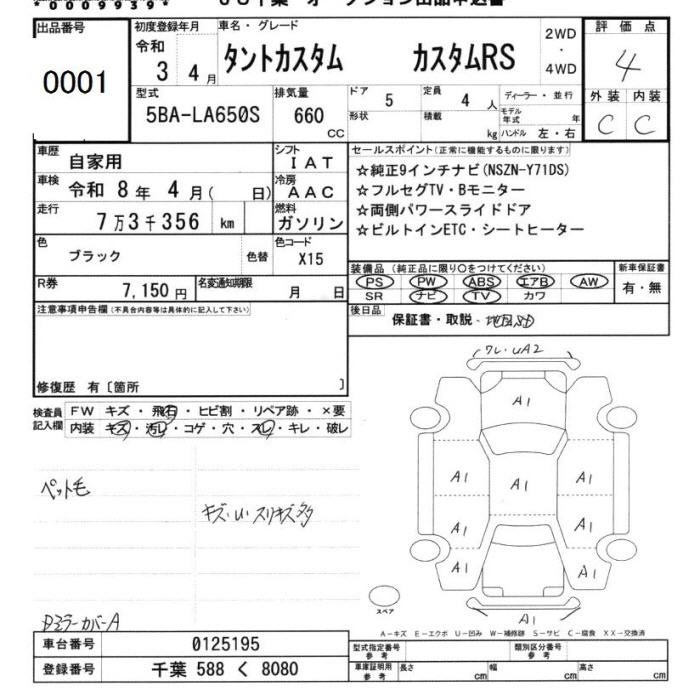 *00099939*
出品番号
0001
初度登録年月
令和
3 4月
車名・グレード
タントカスタム カスタムRS
2WD
・
4WD
評価点
4
外装 内装
C C
型式
5BA-LA650S
排気量
660
CC
ドア 5
形状
定員 4 人
積載 kg
ディーラー・並行
モデル年式 年
ハンドル 左・右
車歴 自家用
車検 令和 8年 4月( 日)
走行 7万3千356 km
色 ブラック 色替
シフト
IAT
冷房
AAC
燃料
ガソリン
色コード
X15
R券 7,150円
名変通知期限 月 日
セールスポイント(正常に機能するものに限ります)
☆純正9インチナビ(NSZN-Y71DS)
☆フルセグTV・Bモニター
☆両側パワースライドドア
☆ビルトインETC・シートヒーター
装備品(純正品に限り○をつけてください)
PS PW ABS エアB AW
SR ナビ TV カワ
新車保証書
有・無
後日品
保証書・取説・地図SD
注意事項申告欄(不具合内容等は具体的に記入して下さい)
修復歴 有〔箇所 〕
検査員
記入欄
FW キズ・飛石・ヒビ割・リペア跡・×要
内装 キズ・汚レ・コゲ・穴・スレ・キレ・破レ
ペット毛
キズ・U・スリキズ多
ミラーカバーA
ワレ・UA2
A1
A1
A1
A1
A1
A1
A1
A1
A1
A1
スペア
A-キズ E-エクボ U-凹み W-補修跡 S-サビ C-腐食 XX-交換済
車台番号 0125195
登録番号 千葉 588 く 8080
型式指定番号
参考
類別区分番号
参考
車庫証明用
参考
長さ cm
幅 cm
高さ cm